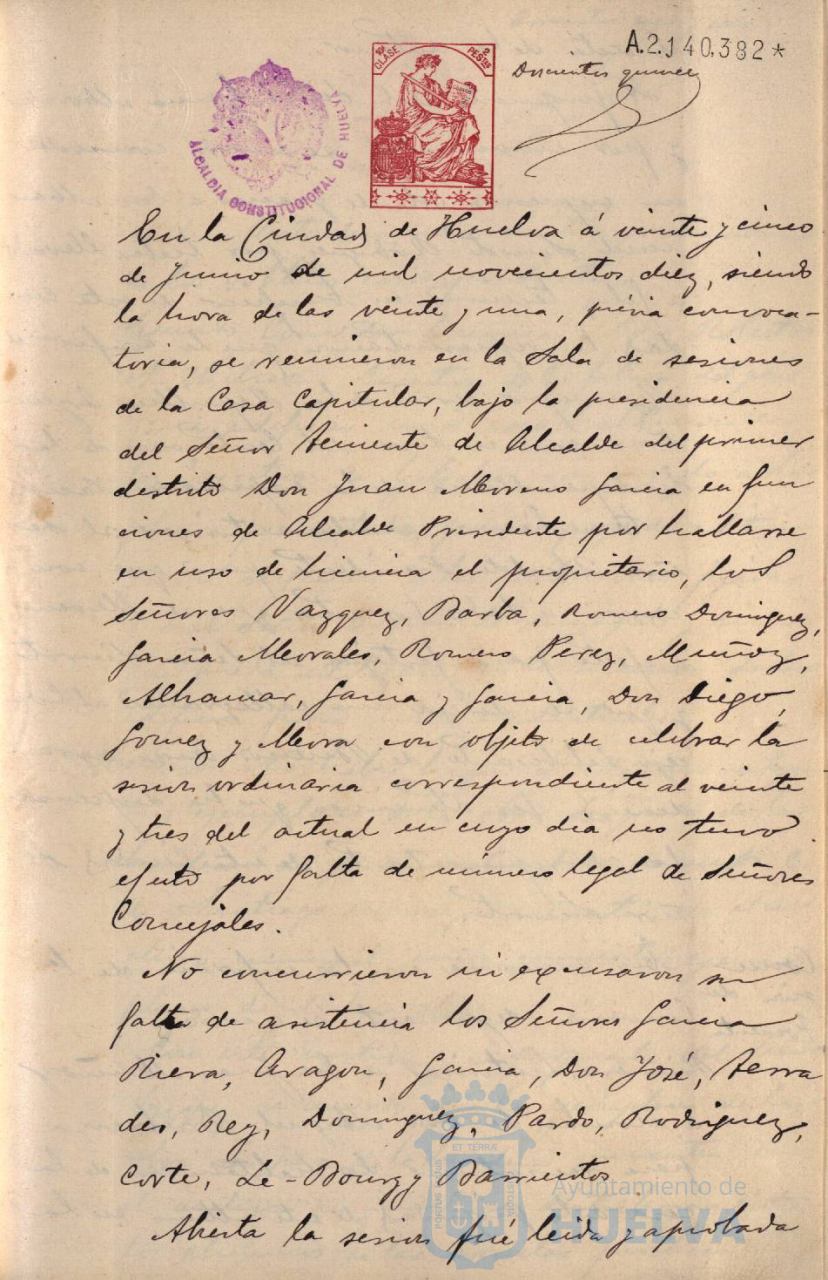 A.2.140,382*
10ª CLASE 2 PESTAS
Doscientos quince
ALCALDIA CONSTITUCIONAL DE HUELVA
En la Ciudad de Huelva á veinte y cinco
de Junio de mil novecientos diez, siendo
la hora de las veinte y una, prévia convoca-
toria, se reunieron en la Sala de sesiones
de la Casa Capitular, bajo la presidencia
del Señor Teniente de Alcalde del primer
distrito Don Juan Moreno Garcia en fun
ciones de Alcalde Presidente por hallarse
en uso de licencia el propietario, los
Señores Vazquez, Barba, Romero Dominguez,
Garcia Morales, Romero Perez, Muñoz,
Alhamar, Garcia y Garcia, Don Diego,
Gomez y Mora con objeto de celebrar la
sesion ordinaria correspondiente al veinte
y tres del actual en cuyo dia no tuvo
efecto por falta de número legal de Señores
Concejales.
No concurrieron ni excusaron su
falta de asistencia los Señores Garcia
Riera, Aragon, Garcia, Don José, Terra
des, Rey, Dominguez, Pardo, Rodriguez,
Corte, Le-Bourg y Barrientos
Abierta la sesion fué leida y aprobada
ET TERRÆ
Ayuntamiento de
HUELVA